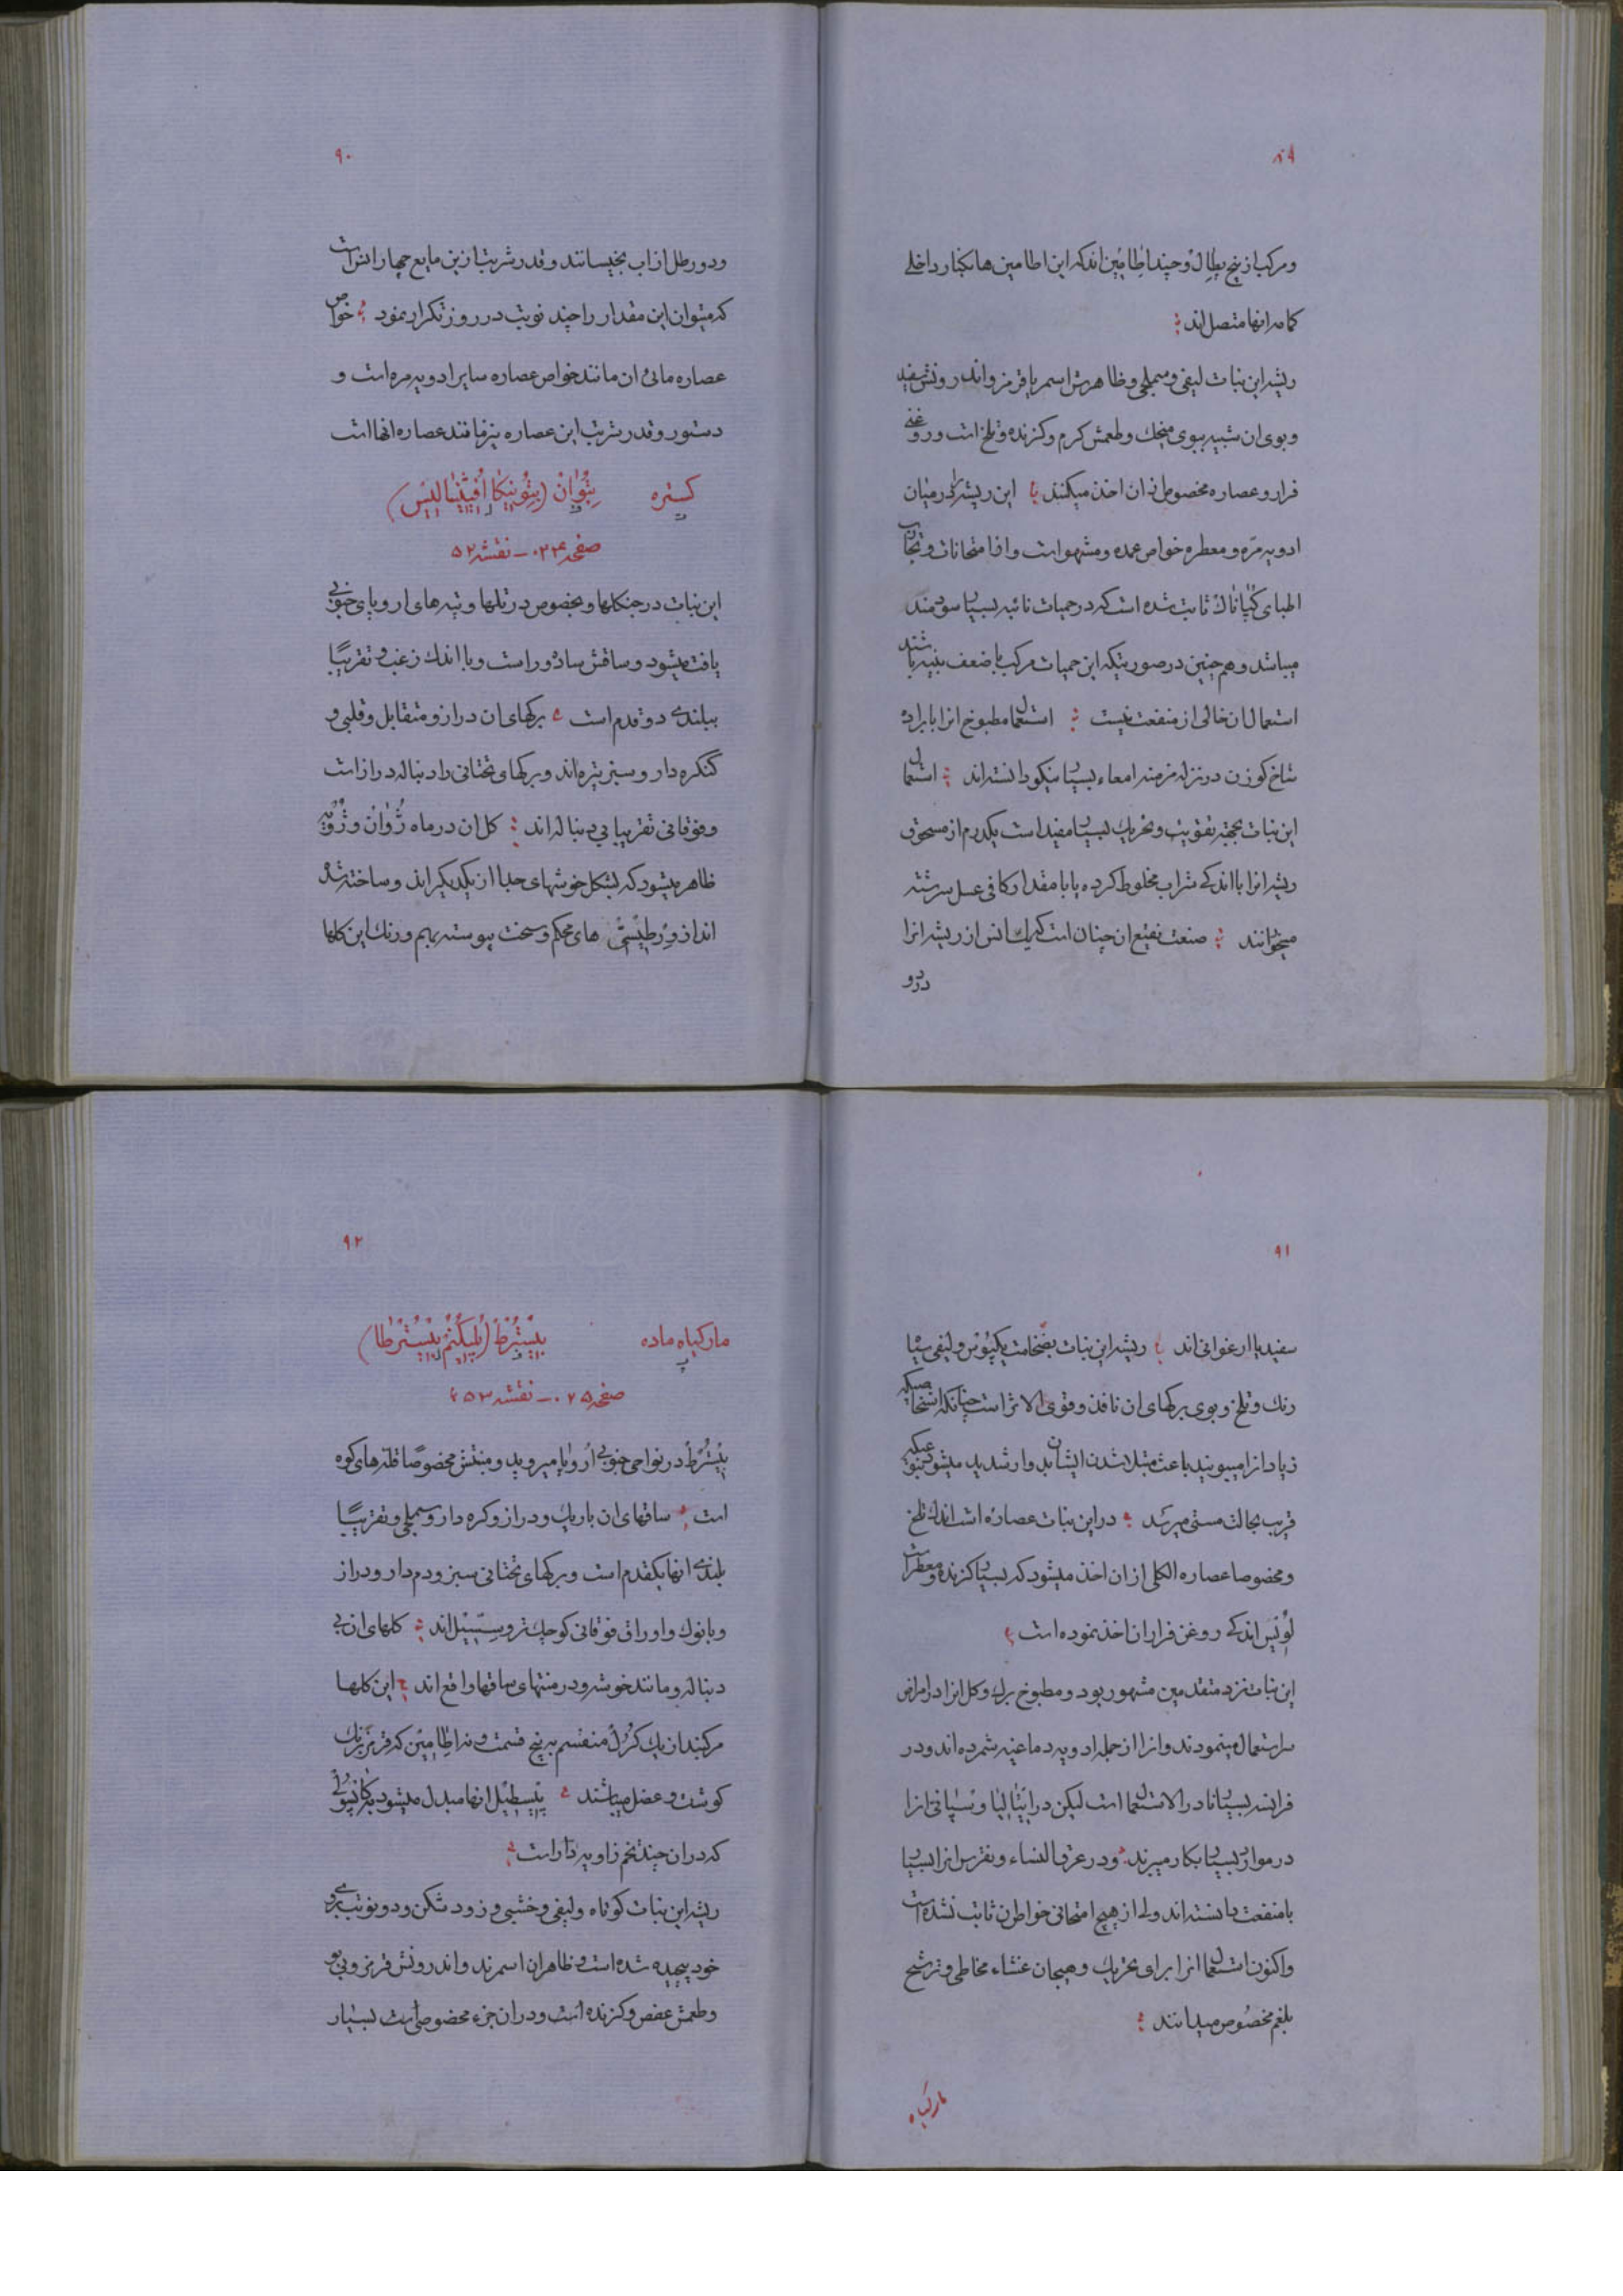 ۸۹
ومرکب از پنج پطال وچند اطامین اند که این اطامین ها بکنار داخلی
کاسه انها متصل اند
ریشه این نبات لیفی و سمجلی وظاهرش اسمر یا قرمز واندرونش سفید
وبوی ان شبیه ببوی میخک وطعمش کرم وکزنده وتلخ است وروغنی
فرار وعصاره مخصوص از ان اخذ میکنند این ریشه را در میان
ادویه مره ومعطره خواص عمده ومشهور است واز امتحانات وتجارب
اطبای ثابت شده است که در حمیات نائبه بسیار سودمند
میباشد وهم چنین در صورتیکه این حمیات مرکب با ضعف بنیه باشند
استعمال ان خالی از منفعت نیست استعمال مطبوخ انرا با براده
شاخ کوزن در نزله مزمنه امعاء بسیار نیکو دانسته اند استعمال
این نبات بجهة تقویت وتحریک بسیار مفید است یکدرم از مسحوق
ریشه انرا با اندکی شراب مخلوط کرده یا با مقدار کافی عسل سرشته
میخورانند صنعت نقیع ان چنان است که یک انس از ریشه انرا
در دو
۹۰
ودو رطل از اب بخیسانند وقدر شربت از ین مایع چهار انس است
که میتوان این مقدار را چند نوبت در روز تکرار نمود خواص
عصاره مائی ان مانند خواص عصاره سایر ادویه مره است و
دستور وقدر شربت این عصاره نیز مانند عصاره انها است
کستره بتوان (بتونیکا افیثینالیس)
صفحه ۰۲۴ – نقشه ۵۲
این نبات در جنکلها وبخصوص در تلها وتپه های اروپای جنوبی
یافت میشود وساقش ساده وراست وبا اندک زغب و تقریبًا
ببلندی دو قدم است برکهای ان دراز ومتقابل وقلبی و
کنکره دار وسبز تیره اند وبرکهای تحتانی را دنباله دراز است
وفوقانی تقریبا بی دنباله اند کل ان در ماه ژوان وژویه
ظاهر میشود که بشکل خوشهای جدا از یکدیکر اند وساخته شده
اند از ورطیسی های محکم وسخت پیوسته بهم ورنک این کلها
۹۱
سفید یا ارغوانی اند ریشه این نبات بضخامت یکپوس ولیفی سیاه
رنک وتلخ وبوی برکهای ان نافذ وقوی الاثر است چنانکه اشخاصیکه
زیاد انرا میبویند باعث مبتلا شدن ایشان بدوار شدید میشود بنحویکه
قریب بحالت مستی میرسد در این نبات عصاره است اندک تلخ
ومخصوصا عصاره الکلی از ان اخذ میشود که بسیار کزنده ومعطر است
لوئیس اندکی روغن فرار از ان اخذ نموده است
این نبات نزد متقدمین مشهور بود ومطبوخ برک وکل انرا در امراض
سر استعمال مینمودند وانرا از جمله ادویه دماغیه شمرده اند ودر
فرانسه بسیار نادر الاستعمال است لیکن در ایتالیا وسپانی انرا
در موارد بسیار بکار میبرند ودر عرق النساء ونقرس انرا بسیار
با منفعت دانسته اند ولی از هیچ امتحانی خواص ان ثابت نشده است
واکنون استعمال انرا برای تحریک وهیجان غشاء مخاطی وترشح
بلغم مخصوص میدانند
مارکیاه
۹۲
مارکیاه ماده بیستُرط (پلیکنم بیستُرطا)
صفحه ۰۷۵ – نقشه ۵۳
بیسترط در نواحی جنوبی اروپا میروید ومنبتش مخصوصًا قله های کوه
است ساقهای ان باریک ودراز وکره دار وسمجلی وتقریبًا
بلندی انها یکقدم است وبرکهای تحتانی سبز ودم دار ودراز
وبا نوک واوراق فوقانی کوچک تر وسیسیل اند کلهای ان بی
دنباله ومانند خوشه ودر منتهای ساقها واقع اند این کلها
مرکبند از یک کرل منقسم به پنج قسمت ونه اطامین که قرمز برنک
کوشت وعضل میباشند پیسطیل انها مبدل میشود به کاپسولی
که در ان چند تخم زاویه دار است
ریشه این نبات کوتاه ولیفی وخشبی وزود شکن ودو نوبت بر روی
خود پیچیده شده است وظاهر ان اسمر تند واندرونش قرمز وبی بو
وطعمش عفص وکزنده است ودر ان جزء مخصوصی است بسیار